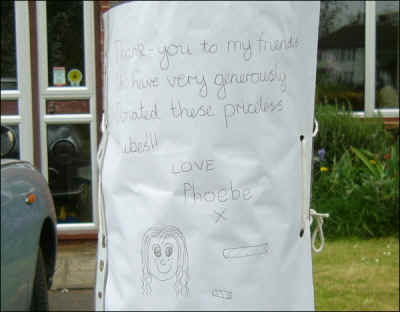 Thank-you to my friends
have very generously
donated these priceless
tubes!!
LOVE
Phoebe
X